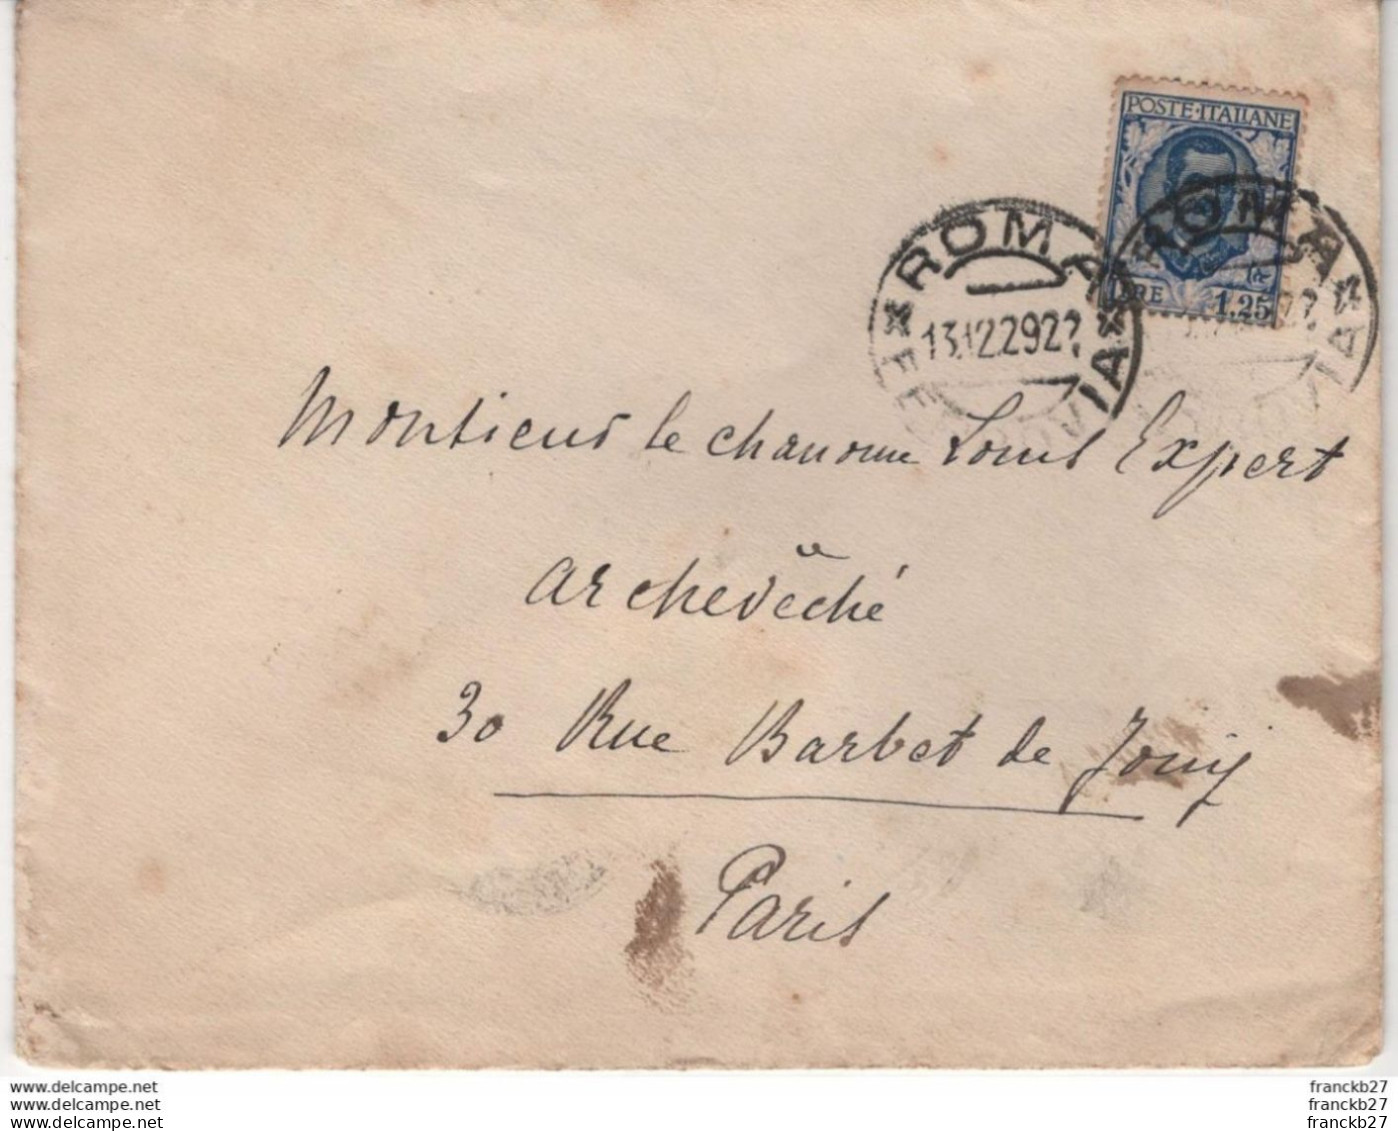 POSTE·ITALIANE
LIRE 1,25
ROMA
13.12.29 22
FERROVIA
ROMA
Monsieur le chanoine Louis Expert
Archevêché
30 Rue Barbet de Jouy
Paris
www.delcampe.net
www.delcampe.net
www.delcampe.net
franckb27
franckb27
franckb27